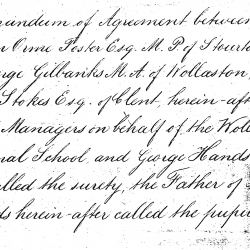 randum of Agreement between
n Orme Foster Esq. M. P. of Stourb
rge Gilbanks M. A. of Wollaston,
Stokes Esq. of Clent, herein-aft
Managers on behalf of the Woll
nal School, and George Hands
alled the surety, the Father of
ds herein-after called the pupil